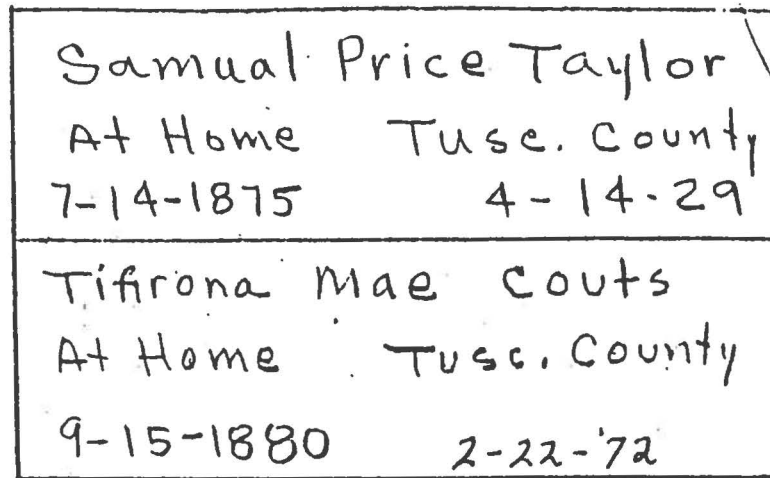 Samual Price Taylor
At Home Tusc. County
7-14-1875 4-14-29
Tifirona Mae Couts
At Home Tusc. County
9-15-1880 2-22-'72